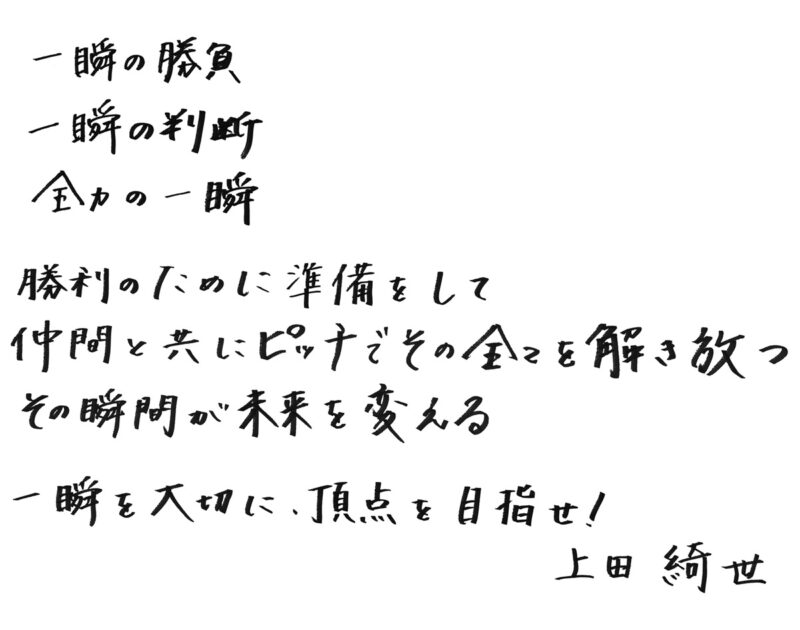 一瞬の勝負
一瞬の判断
全力の一瞬
勝利のために準備をして
仲間と共にピッチでその全てを解き放つ
その瞬間が未来を変える
一瞬を大切に、頂点を目指せ!
上田綺世